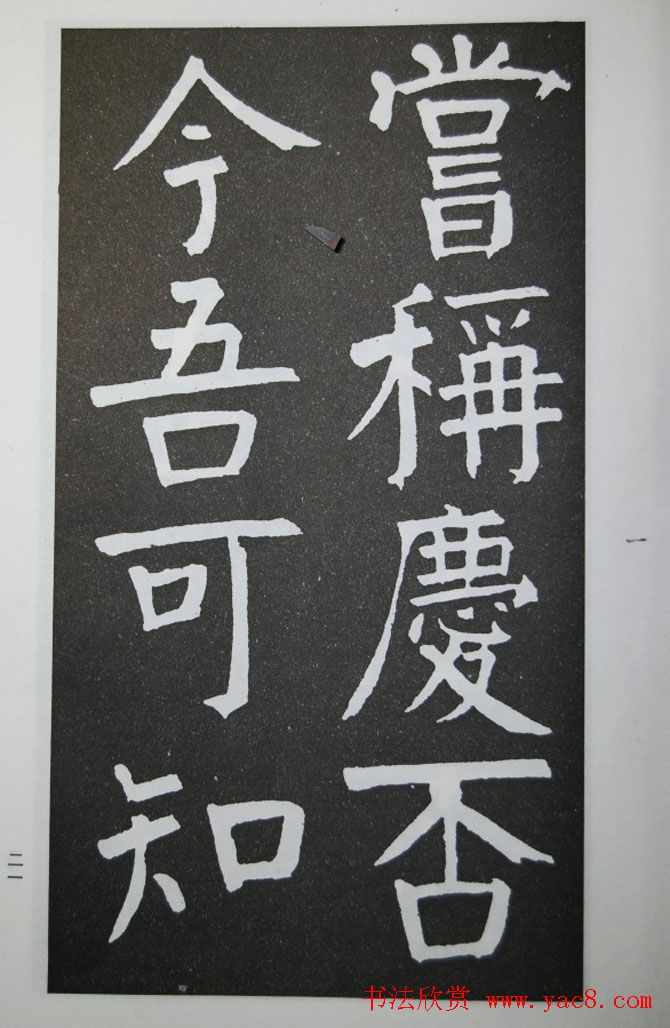 嘗稱慶否
今吾可知
一
二三
书法欣赏 www.yac8.com